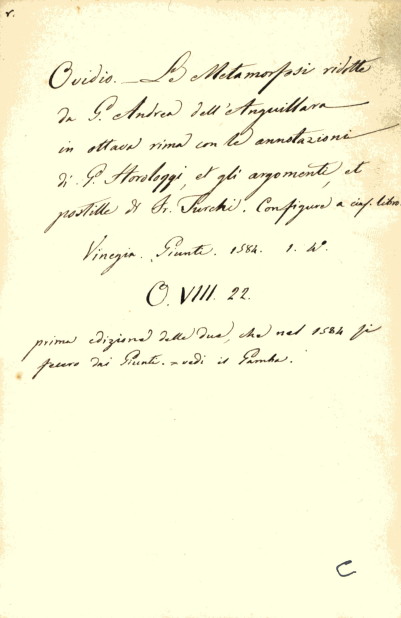 v.
Ovidio. — Le Metamorfosi ridotte
da G. Andrea dell'Anguillara
in ottava rima con le annotazioni
di G. Horologgi, et gli argomenti, et
postille di Fr. Turchi. Con figure a ciasc. libro.
Vinegia. Giunti. 1584. 1. 4º.
O. VIII. 22.
prima edizione delle due, che nel 1584 si
fecero dai Giunti. = vedi il Gamba.
C